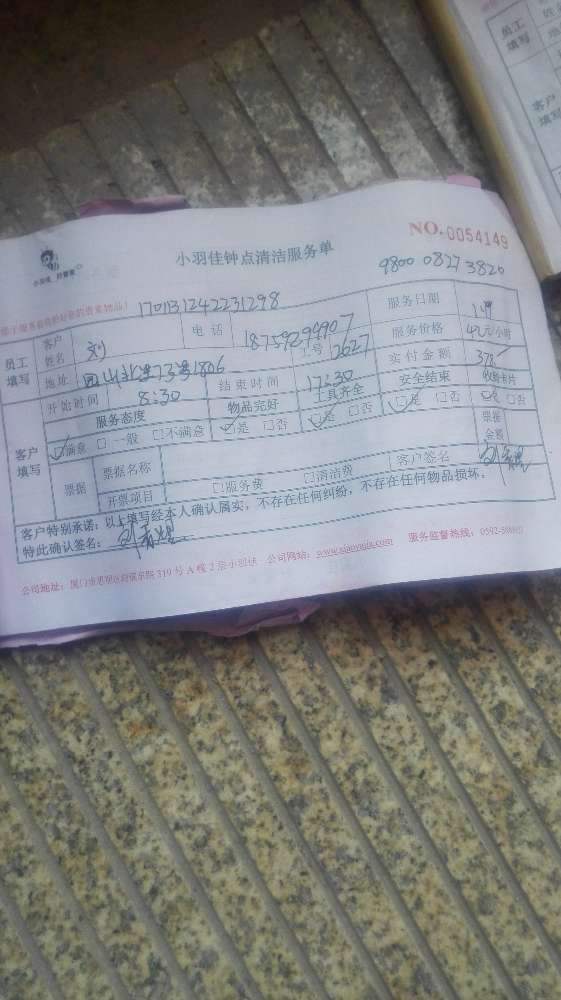 小羽佳钟点清洁服务单
NO.0054149
9800 0827 3820
170131242231298
员工填写
客户姓名 刘 电话 18759299907 服务日期
地址 工号 2627 服务价格 42元/小时
开始时间 8:30 结束时间 17:30 实付金额 378
客户填写
服务态度 物品完好 工具齐全 安全结束 收验卡片
☑满意 □一般 □不满意 ☑是 □否 ☑是 □否 ☑是 □否 ☑是 □否
票据 票据名称 票据金额
开票项目 □服务费 □清洁费 客户签名
客户特别承诺：以上填写经本人确认属实，不存在任何纠纷，不存在任何物品损坏，
特此确认签名：
公司地址：厦门市思明区 319号A幢2层小羽佳 公司网站：www.xiaoyujia.com 服务监督热线：0592-
员工填写
客户填写